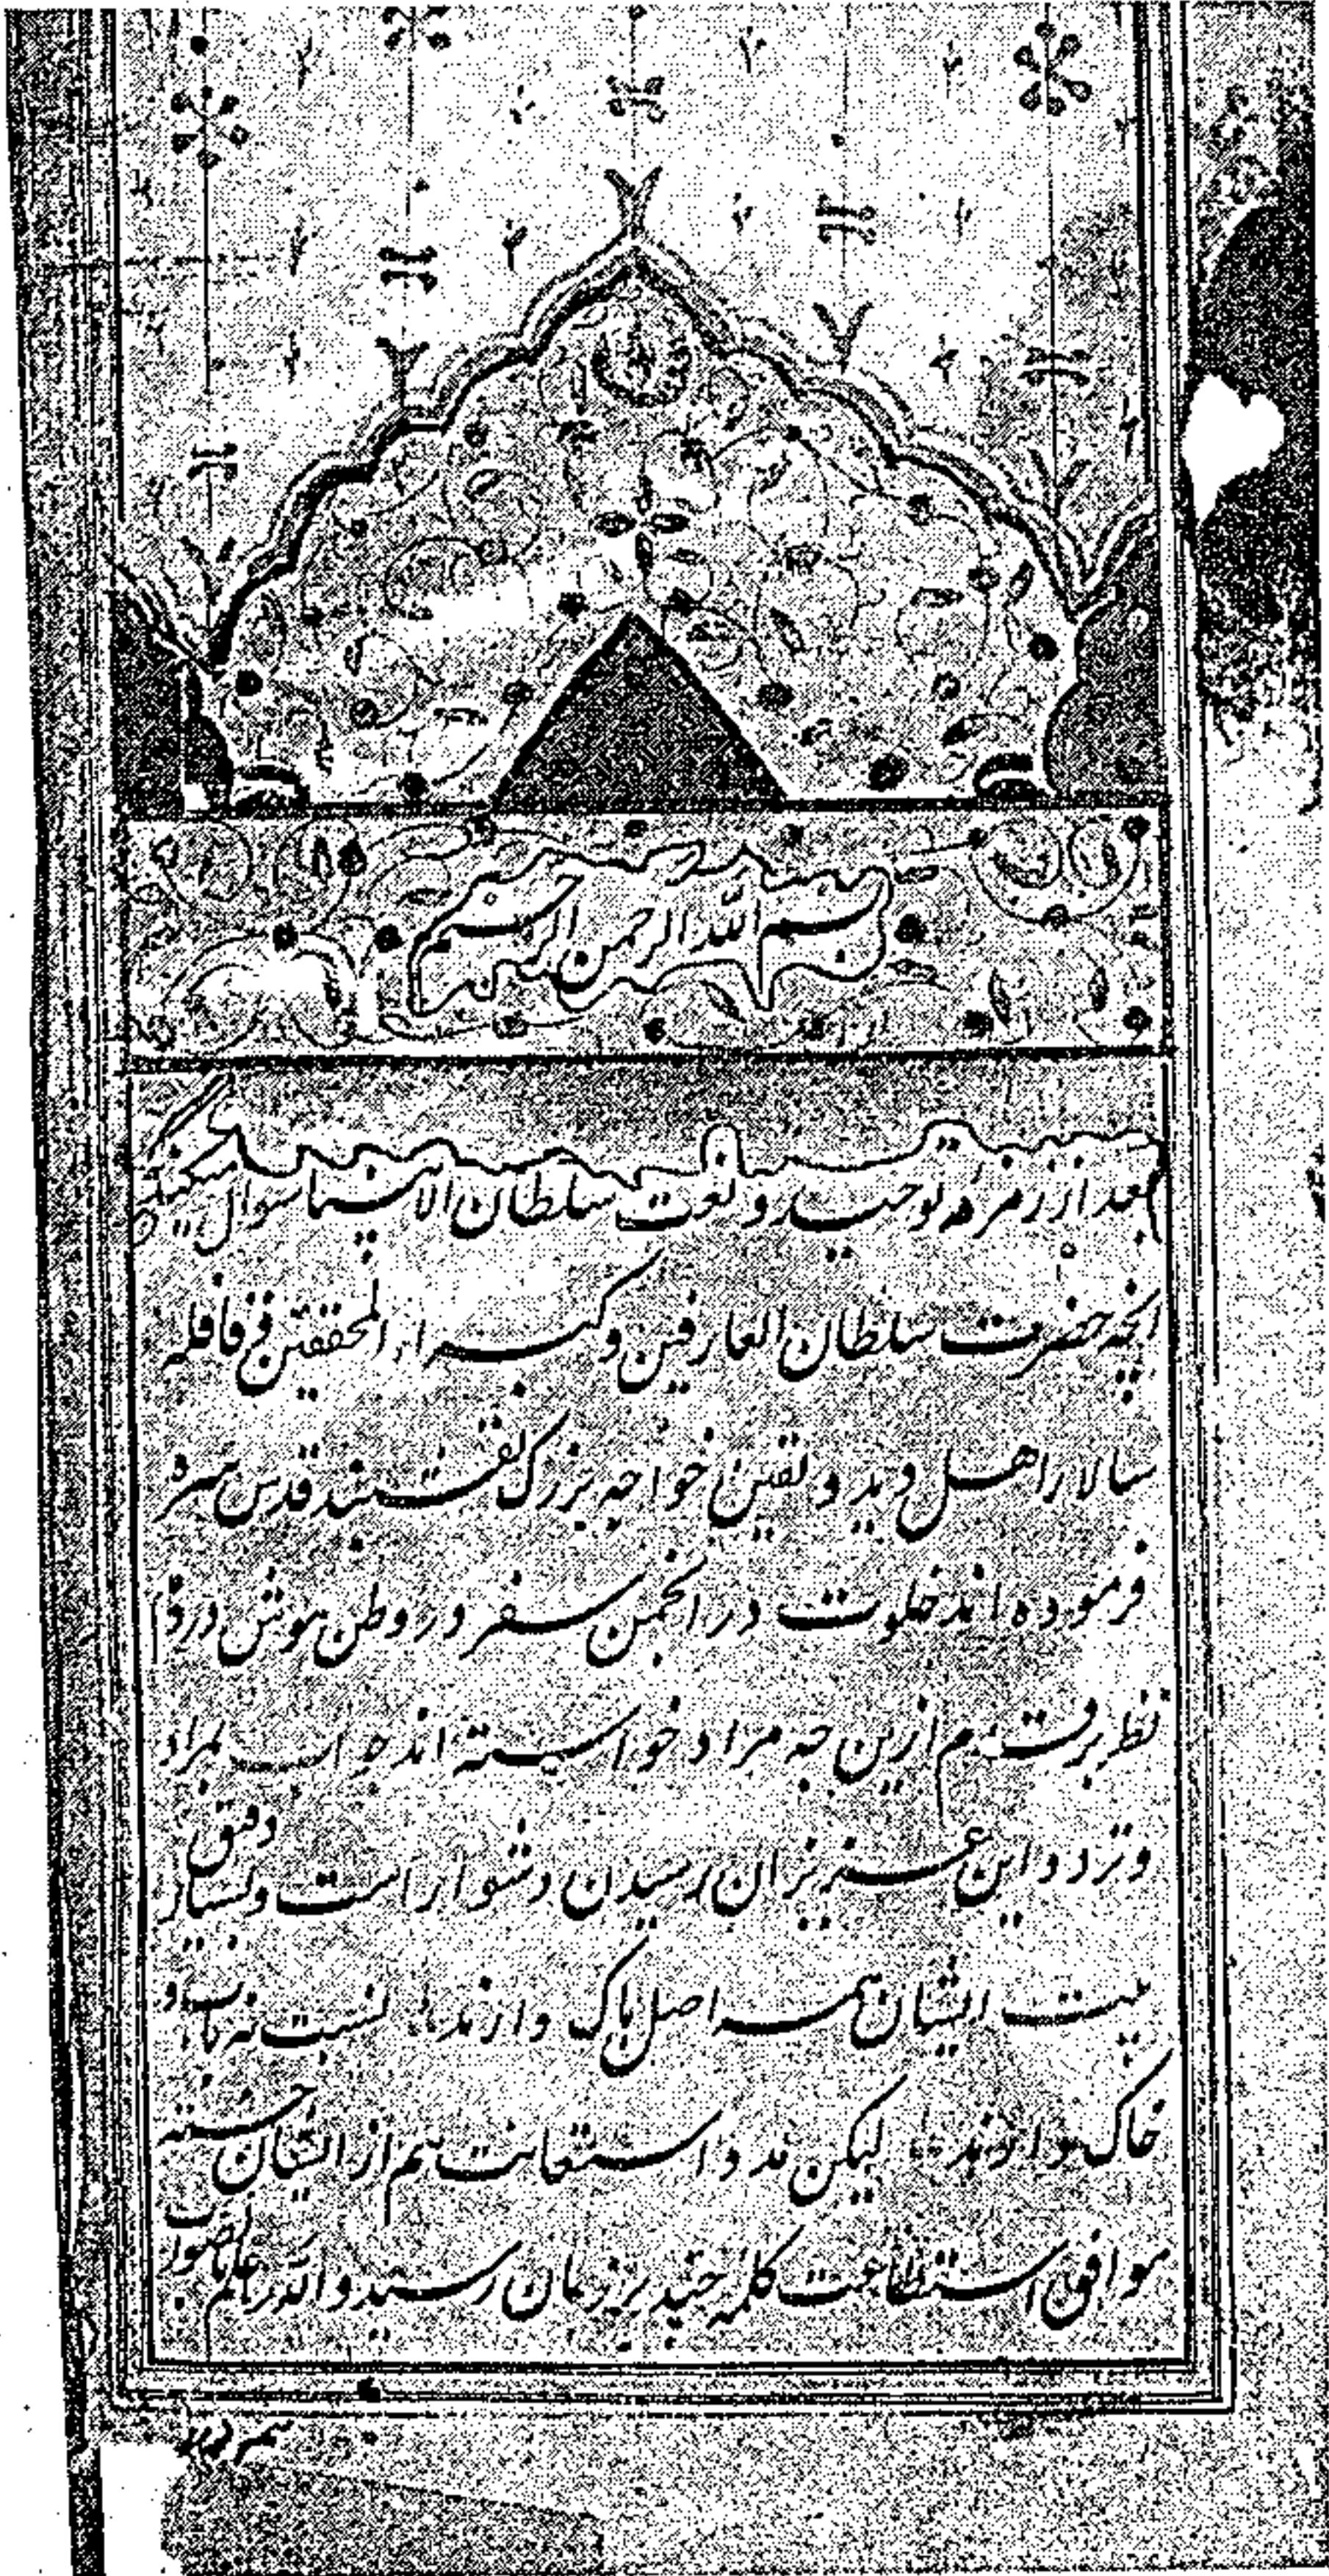 بسم الله الرحمن الرحیم
بعد از زمزمه توحید و نعت سلطان الانبیا سوال میکنند
انچه حضرت سلطان العارفین و کبراء المحققین قافله
سالار اهل دید و یقین خواجه بزرک نقشبند قدس سره
فرموده اند خلوت در انجمن سفر در وطن هوش در دم
نظر بر قدم ازین چه مراد خواسته اند جواب بمراد
و تردد این عزیزان رسیدن دشوار است و بسیار دقیق
بیت ایشان همه اصل پاک دارند نسبت نه باب و
خاک دارند لیکن مدد و استعانت هم از ایشان جسته
موافق استطاعت کلمه چند بر زبان رسید والله اعلم بالصواب